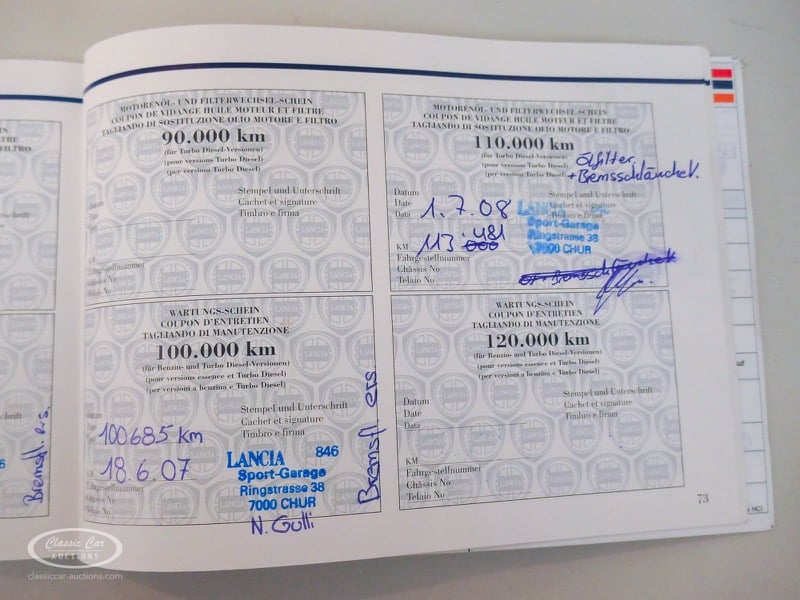 MOTORENÖL- UND FILTERWECHSEL-SCHEIN
COUPON DE VIDANGE HUILE MOTEUR ET FILTRE
TAGLIANDO DI SOSTITUZIONE OLIO MOTORE E FILTRO
90.000 km
(für Turbo Diesel-Versionen)
(pour versions Turbo Diesel)
(per versioni Turbo Diesel)
Stempel und Unterschrift
Cachet et signature
Timbro e firma
KM
Fahrgestellnummer
MOTORENÖL- UND FILTERWECHSEL-SCHEIN
COUPON DE VIDANGE HUILE MOTEUR ET FILTRE
TAGLIANDO DI SOSTITUZIONE OLIO MOTORE E FILTRO
110.000 km
(für Turbo Diesel-Versionen)
(pour versions Turbo Diesel)
(per versioni Turbo Diesel)
Ölfilter
+ Bemsschläuche V.
Datum
Date
Data
1.7.08
Stempel und Unterschrift
Cachet et signature
Timbro e firma
LANCIA
Sport-Garage
Ringstrasse 38
7000 CHUR
KM
113.481
Fahrgestellnummer
Châssis No
Telaio No
WARTUNGS-SCHEIN
COUPON D'ENTRETIEN
TAGLIANDO DI MANUTENZIONE
100.000 km
(für Benzin- und Turbo Diesel-Versionen)
(pour versions essence et Turbo Diesel)
(per versioni a benzina e Turbo Diesel)
Stempel und Unterschrift
Cachet et signature
Timbro e firma
100685 km
18.6.07
KM
Fahrgestellnummer
Châssis No
Telaio No
LANCIA 846
Sport-Garage
Ringstrasse 38
7000 CHUR
N. Gulli
Bremsfl. ers
WARTUNGS-SCHEIN
COUPON D'ENTRETIEN
TAGLIANDO DI MANUTENZIONE
120.000 km
(für Benzin- und Turbo Diesel-Versionen)
(pour versions essence et Turbo Diesel)
(per versioni a benzina e Turbo Diesel)
Stempel und Unterschrift
Cachet et signature
Timbro e firma
Datum
Date
Data
KM
Fahrgestellnummer
Châssis No
Telaio No
73
Bremsfl. ers.
Classic Car
AUCTIONS
classiccar-auctions.com